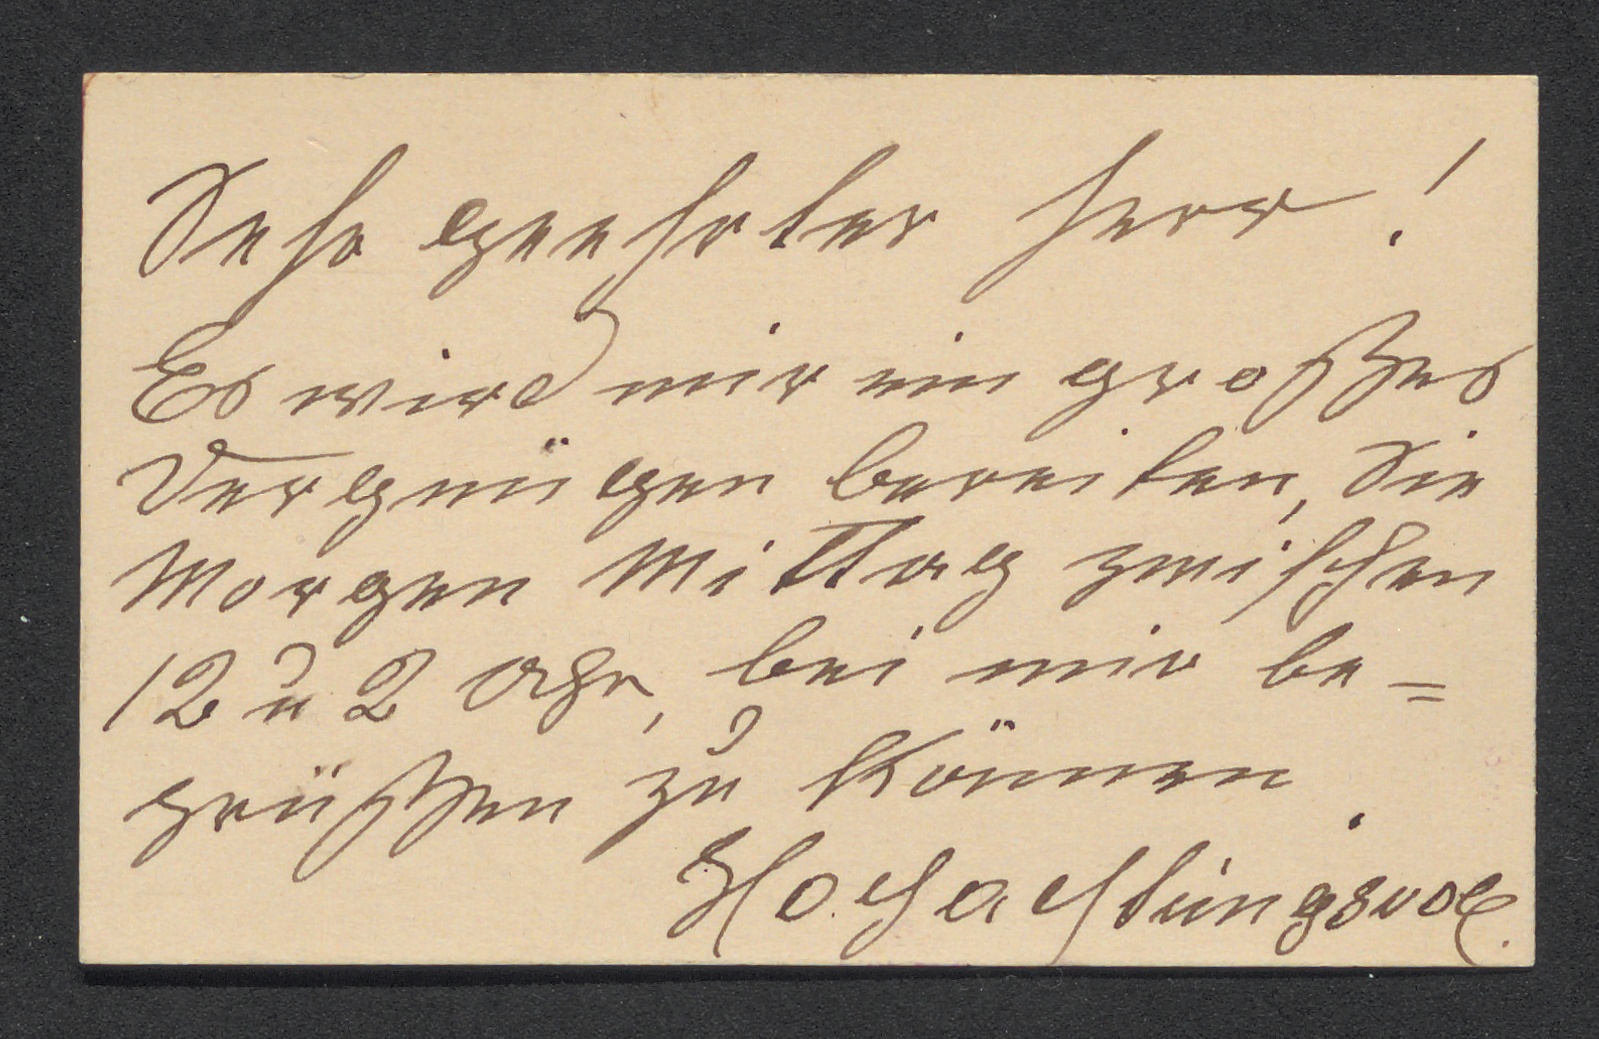 Sehr geehrter Herr!
Es wird mir ein großes
Vergnügen bereiten, Sie
Morgen Mittag zwischen
12 u 2 Uhr, bei mir be=
grüßen zu können.
Hochachtungsvoll.